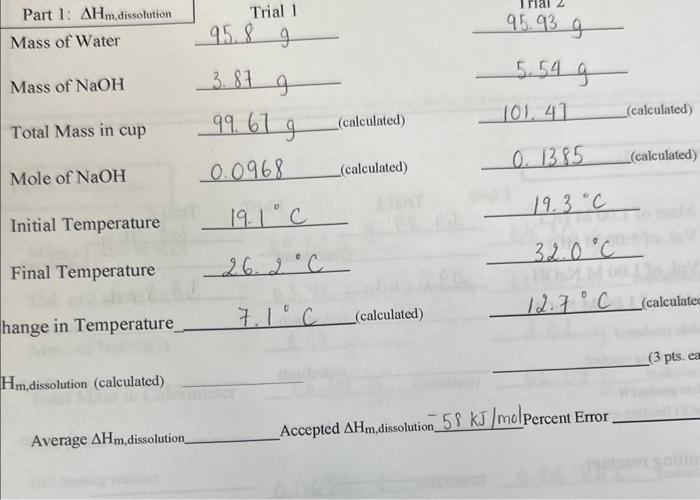 Part 1: ΔHm,dissolution Trial 1 Trial 2
Mass of Water 95.8 g 95.93 g
Mass of NaOH 3.87 g 5.54 g
Total Mass in cup 99.67 g (calculated) 101.47 (calculated)
Mole of NaOH 0.0968 (calculated) 0.1385 (calculated)
Initial Temperature 19.1°C 19.3°C
Final Temperature 26.2°C 32.0°C
hange in Temperature 7.1°C (calculated) 12.7°C (calculated
(3 pts. ea
Hm,dissolution (calculated)
Average ΔHm,dissolution Accepted ΔHm,dissolution -58 kJ/mol Percent Error